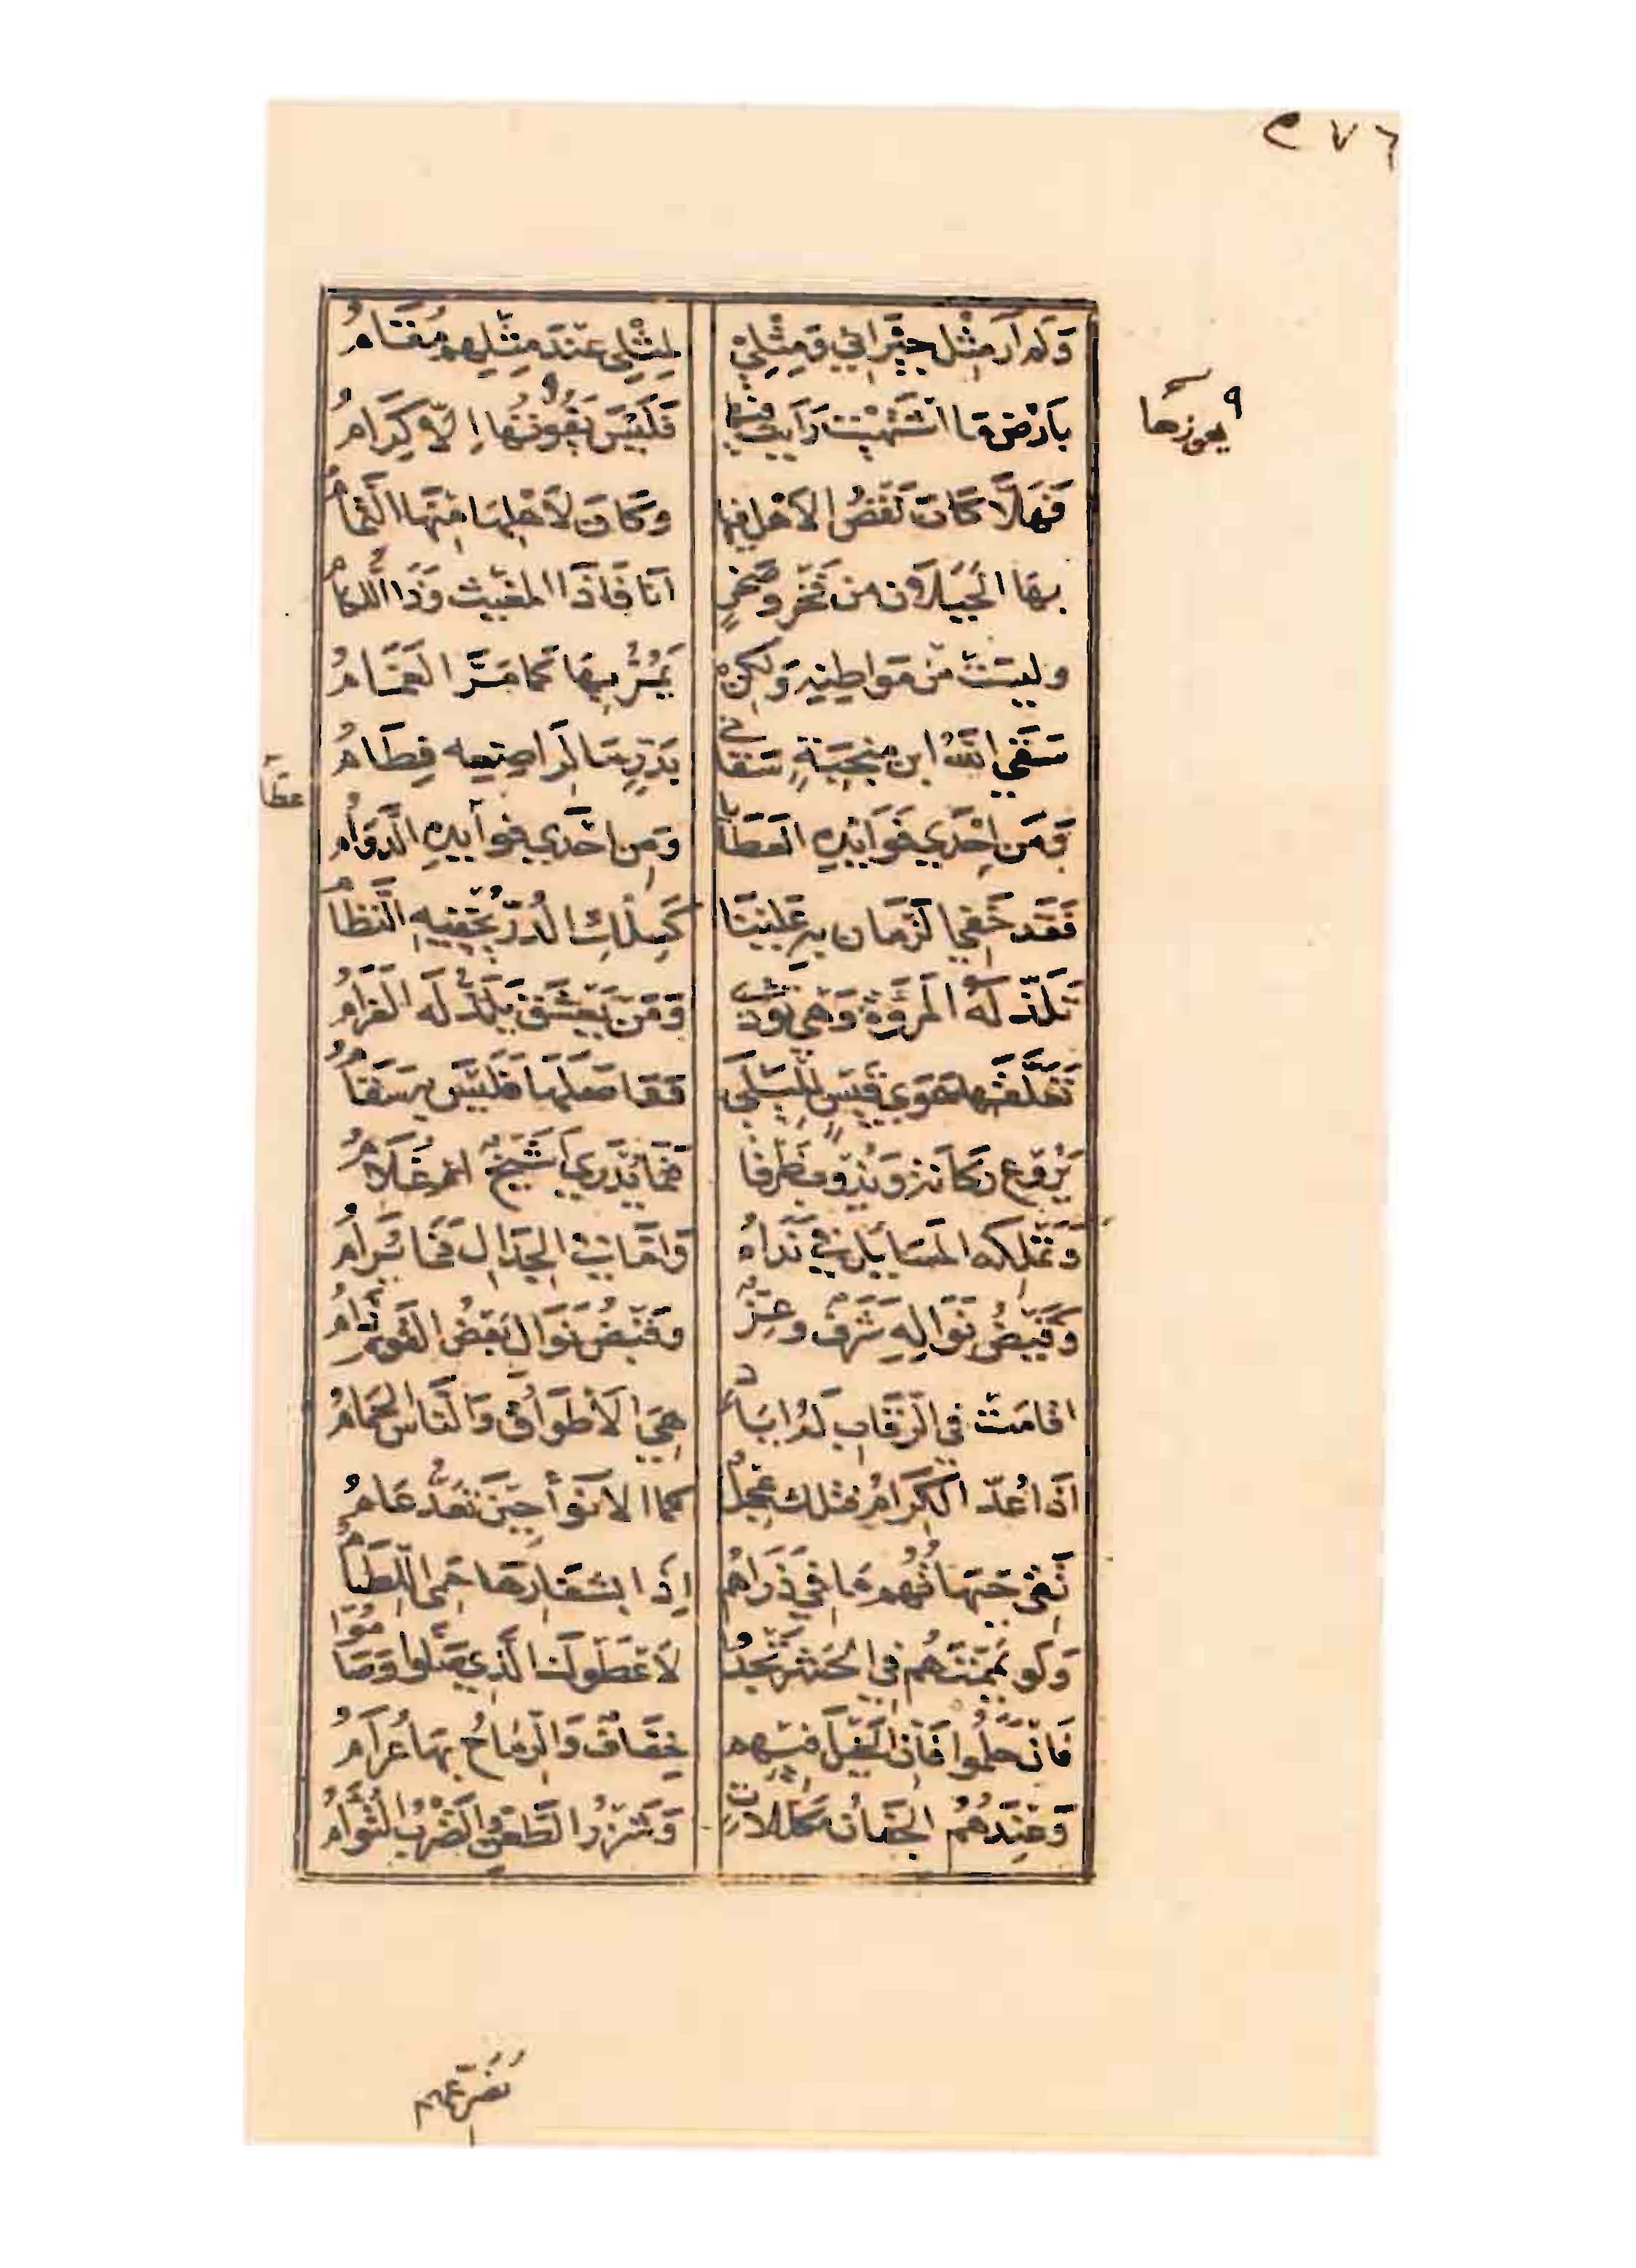 ٢٧٦
وَلم أرَ مِثْل جِيْرَانِي وَمِثْلِيْ لمِثْلِي عِنْدَ مِثْلِهِمْ مُقَامُ
بِأرْضٍ مَا اشْتَهَيْت رَأيت فيها فَلَيْسَ يَفُوتُهَا إلاّ كِرَامُ
٩ يعوزها
فَهَلَّا كَانَ نَقْصُ الأهْلِ فيها وَكَانَ لأهْلِهَا مِنْهَا التَّمَامُ
بهَا الجَبَلَانِ من فَخْرٍ وصَخْرٍ أنَافَا ذَا المغيث وَذَا اللكامُ
وليسَتْ مِنْ مَوَاطِنِهِ وَلكِنْ يَمُرُّ بِهَا كَمَا مَرَّ الغَمَامُ
سَقَى اللهُ ابن منجِبَةٍ سَقَاني بِدَرٍّ مَا لِرَاضِعِهِ فِطَامُ
وَمَن إحْدَى فَوَائِدِهِ العَطَايَا وَمِن إحْدَى فوائدِهِ الدَّوَامُ
عطا
فَقَد خَفِيَ الزَّمَان بِهِ عَلَيْنَا كَسِلْكِ الدُّرّ يُخْفِيهِ النِّظَامُ
تَلَذّ لَهُ المُرُوَّةُ وَهْيَ تؤْذي وَمَنْ يَعْشَقْ يَلَذُّ لَه الغَرَامُ
تَعَلَّقَهَا هَوَى قَيْسٍ لِلَيْلَى وَوَاصَلَهَا فَلَيْسَ بِهِ سَقَامُ
يَرُوع رَكَانة وَيَذُوب ظَرفا فَمَا يُدْرَى أشَيْخٌ أم غُلَامُ
وَتَمْلِكه المَسَائِل في نَدَاهُ وَأمَّا في الجِدَالِ فَمَا يُرَامُ
وَقَبْضُ نَوَالِهِ شَرَفٌ وعِزٌّ وَقَبْضُ نَوَال بَعْضُ القَوْم ذَامُ
اقامَتْ في الرِّقَابِ لَهُ ايَادٍ هِيَ الأطْوَاقُ وَالنَّاسُ الحَمَامُ
اذَا عُدّ الكِرَامُ فتلك عِجْلٌ كما الانوَاءُ حِينَ تُعَدُّ عَامُ
تَقِي جَبَهَاتُهُم مَا في ذَرَاهُم إذَا بِشِفَارِهَا حَمِيَ اللِّطَامُ
وَلو يَمَّمْتَهُم في الحَشْرِ تَجْدُو لأعْطَوكَ الَّذي صَلَّوا وَصَامُوا
فَانْ حَلُمُوا فَانَّ الخَيْلَ فيهم خِفَافٌ وَالرِّمَاحُ بِهَا عُرَامُ
وَعِنْدَهُمُ الجِفَانُ مُكَلَّلَاتٍ وَشَزْرُ الطَّعْنِ وَالضَّرْبُ التُّؤَامُ
نُصَرِّعهم